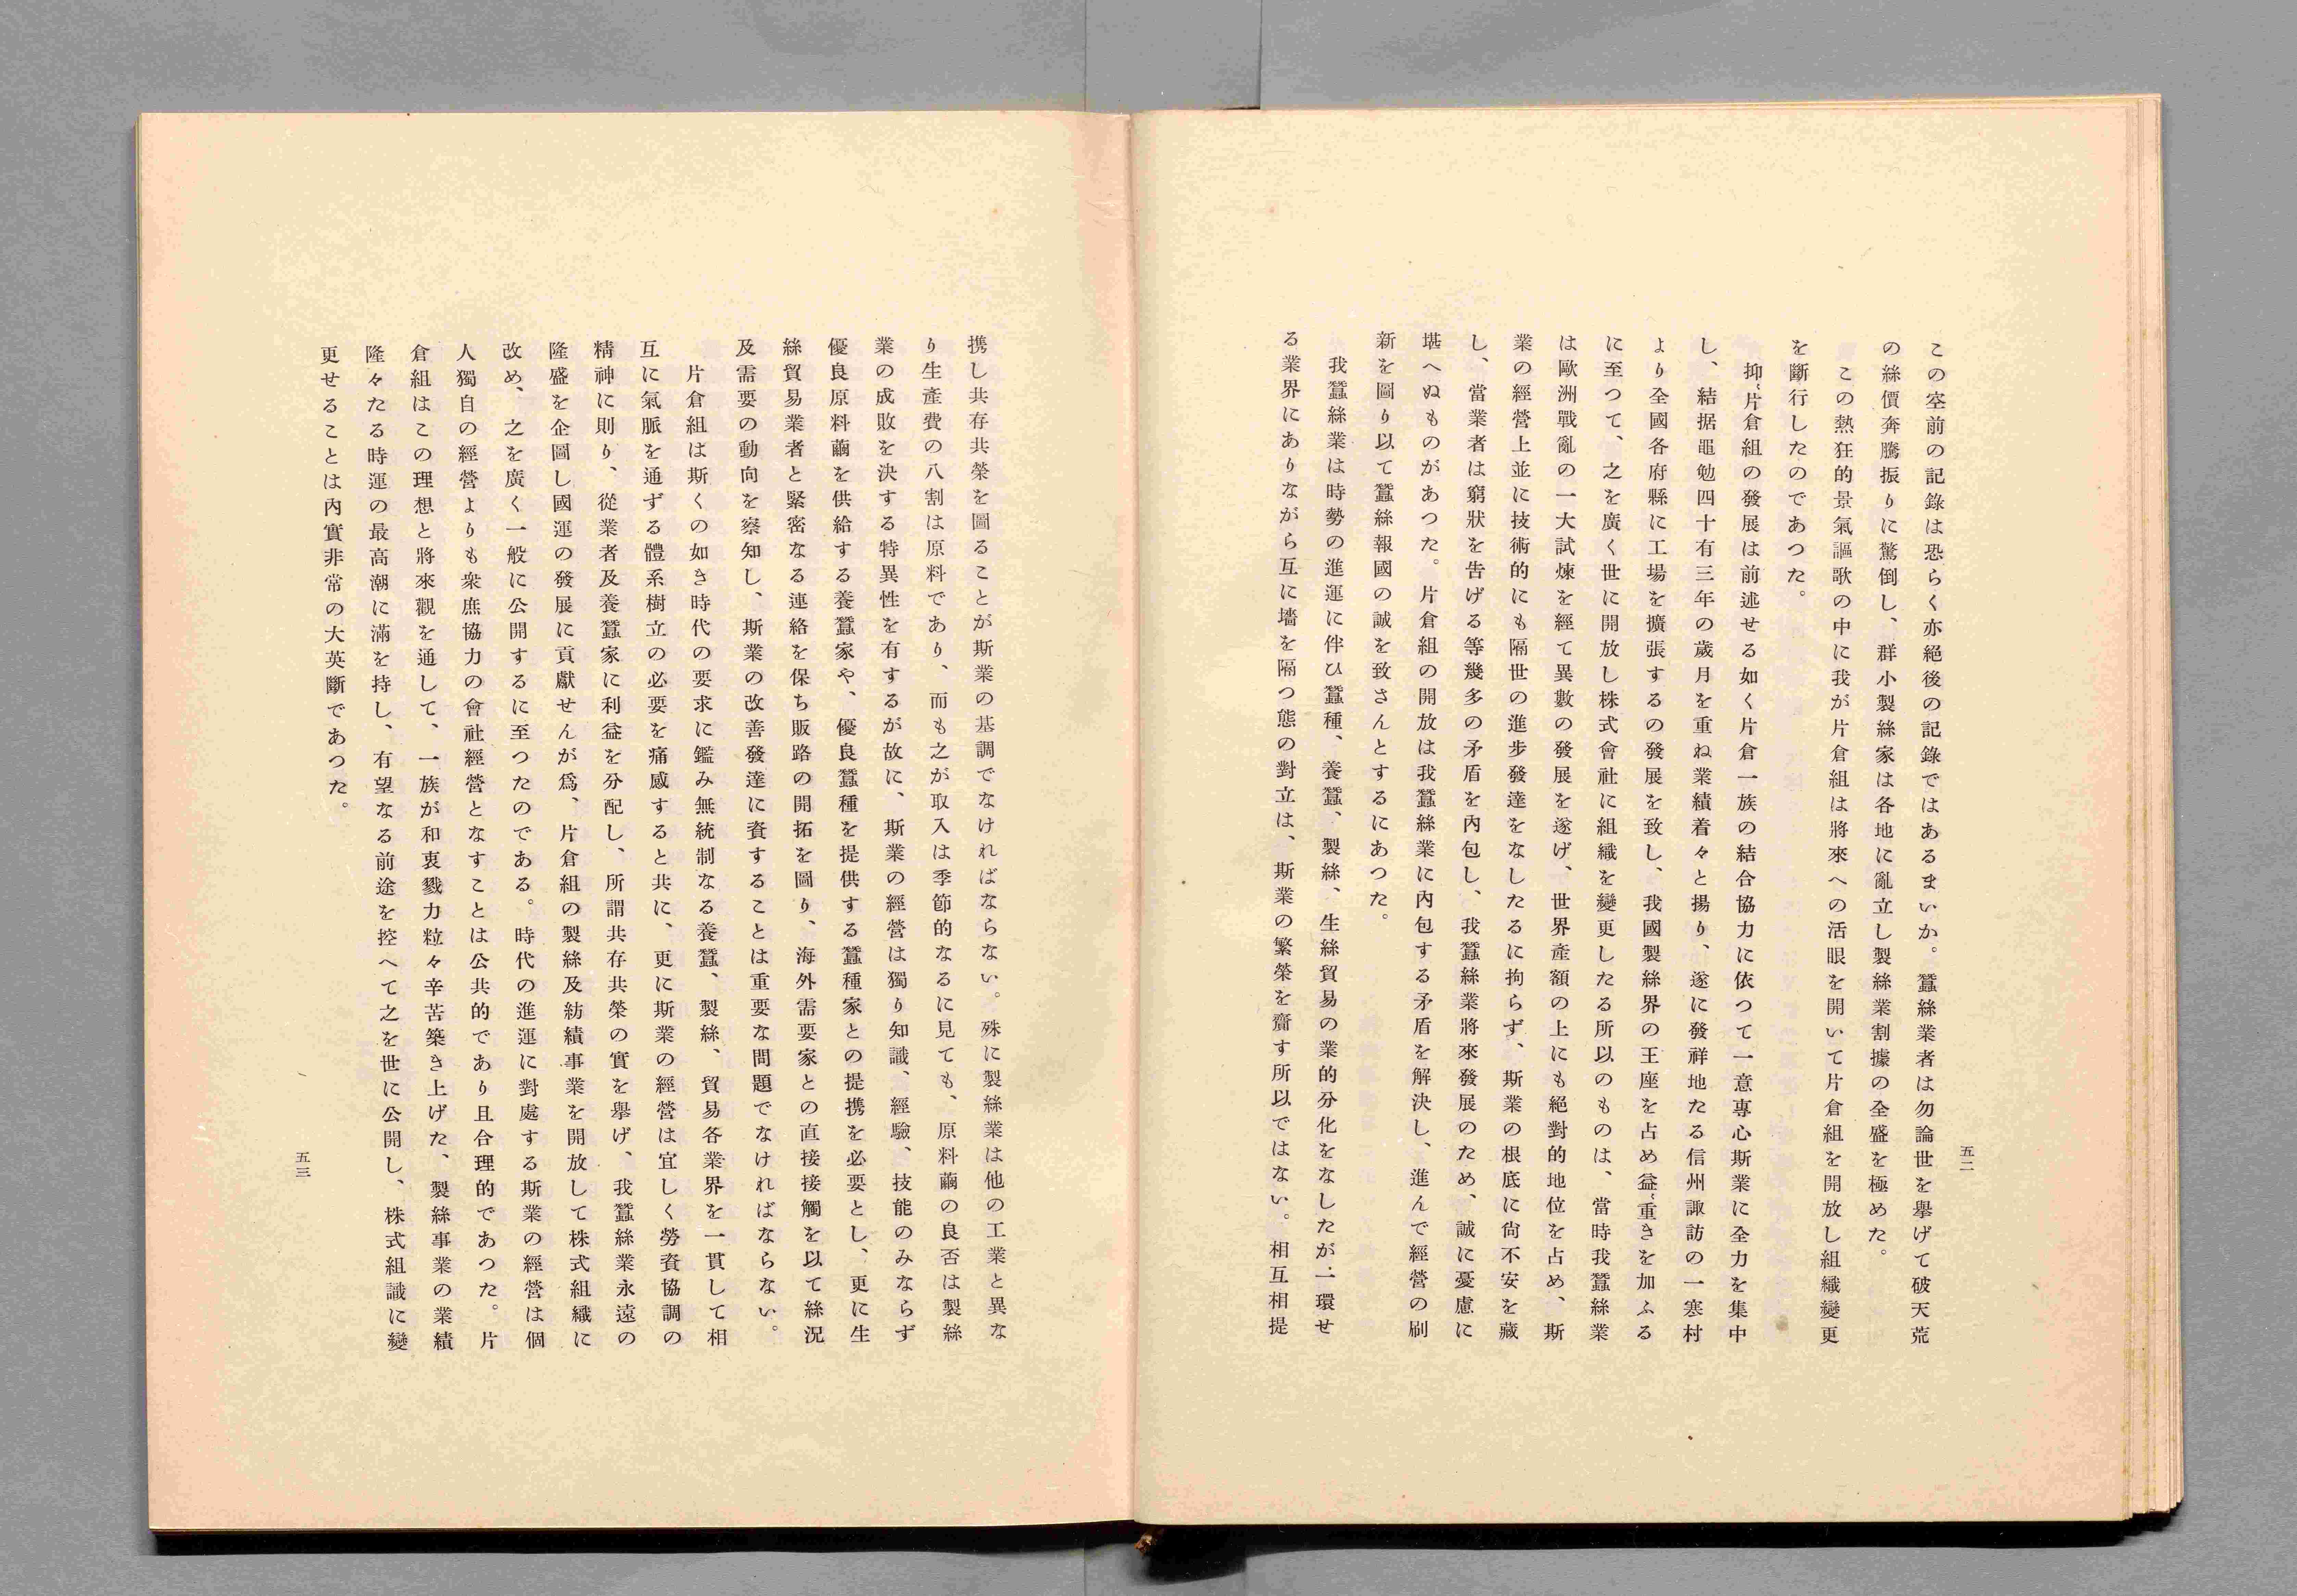 この空前の記錄は恐らく亦絕後の記錄ではあるまいか。蠶絲業者は勿論世を擧げて破天荒
の絲價奔騰振りに驚倒し、群小製絲家は各地に亂立し製絲業割據の全盛を極めた。
この熱狂的景氣謳歌の中に我が片倉組は將來への活眼を開いて片倉組を開放し組織變更
を斷行したのであつた。
抑〻片倉組の發展は前述せる如く片倉一族の結合協力に依つて一意專心斯業に全力を集中
し、結据黽勉四十有三年の歲月を重ね業績着々と揚り、遂に發祥地たる信州諏訪の一寒村
より全國各府縣に工場を擴張するの發展を致し、我國製絲界の王座を占め益〻重きを加ふる
に至つて、之を廣く世に開放し株式會社に組織を變更したる所以のものは、當時我蠶絲業
は歐洲戰亂の一大試煉を經て異數の發展を遂げ、世界產額の上にも絕對的地位を占め、斯
業の經營上並に技術的にも隔世の進步發達をなしたるに拘らず、斯業の根底に尙不安を藏
し、當業者は窮狀を吿げる等幾多の矛盾を內包し、我蠶絲業將來發展のため、誠に憂慮に
堪へぬものがあつた。片倉組の開放は我蠶絲業に內包する矛盾を解決し、進んで經營の刷
新を圖り以て蠶絲報國の誠を致さんとするにあつた。
我蠶絲業は時勢の進運に伴ひ蠶種、養蠶、製絲、生絲貿易の業的分化をなしたが一環せ
る業界にありながら互に墻を隔つ態の對立は、斯業の繁榮を齎す所以ではない。相互相提
五二
携し共存共榮を圖ることが斯業の基調でなければならない。殊に製絲業は他の工業と異な
り生產費の八割は原料であり、而も之が取入は季節的なるに見ても、原料繭の良否は製絲
業の成敗を決する特異性を有するが故に、斯業の經營は獨り知識、經驗、技能のみならず
優良原料繭を供給する養蠶家や、優良蠶種を提供する蠶種家との提携を必要とし、更に生
絲貿易業者と緊密なる連絡を保ち販路の開拓を圖り、海外需要家との直接接觸を以て絲況
及需要の動向を察知し、斯業の改善發達に資することは重要な問題でなければならない。
片倉組は斯くの如き時代の要求に鑑み無統制なる養蠶、製絲、貿易各業界を一貫して相
互に氣脈を通ずる體系樹立の必要を痛感すると共に、更に斯業の經營は宜しく勞資協調の
精神に則り、從業者及養蠶家に利益を分配し、所謂共存共榮の實を擧げ、我蠶絲業永遠の
隆盛を企圖し國運の發展に貢獻せんが爲、片倉組の製絲及紡績事業を開放して株式組織に
改め、之を廣く一般に公開するに至つたのである。時代の進運に對處する斯業の經營は個
人獨自の經營よりも衆庶協力の會社經營となすことは公共的であり且合理的であつた。片
倉組はこの理想と將來觀を通して、一族が和衷戮力粒々辛苦築き上げた、製絲事業の業績
隆々たる時運の最高潮に滿を持し、有望なる前途を控へて之を世に公開し、株式組識に變
更せることは內實非常の大英斷であつた。
五三